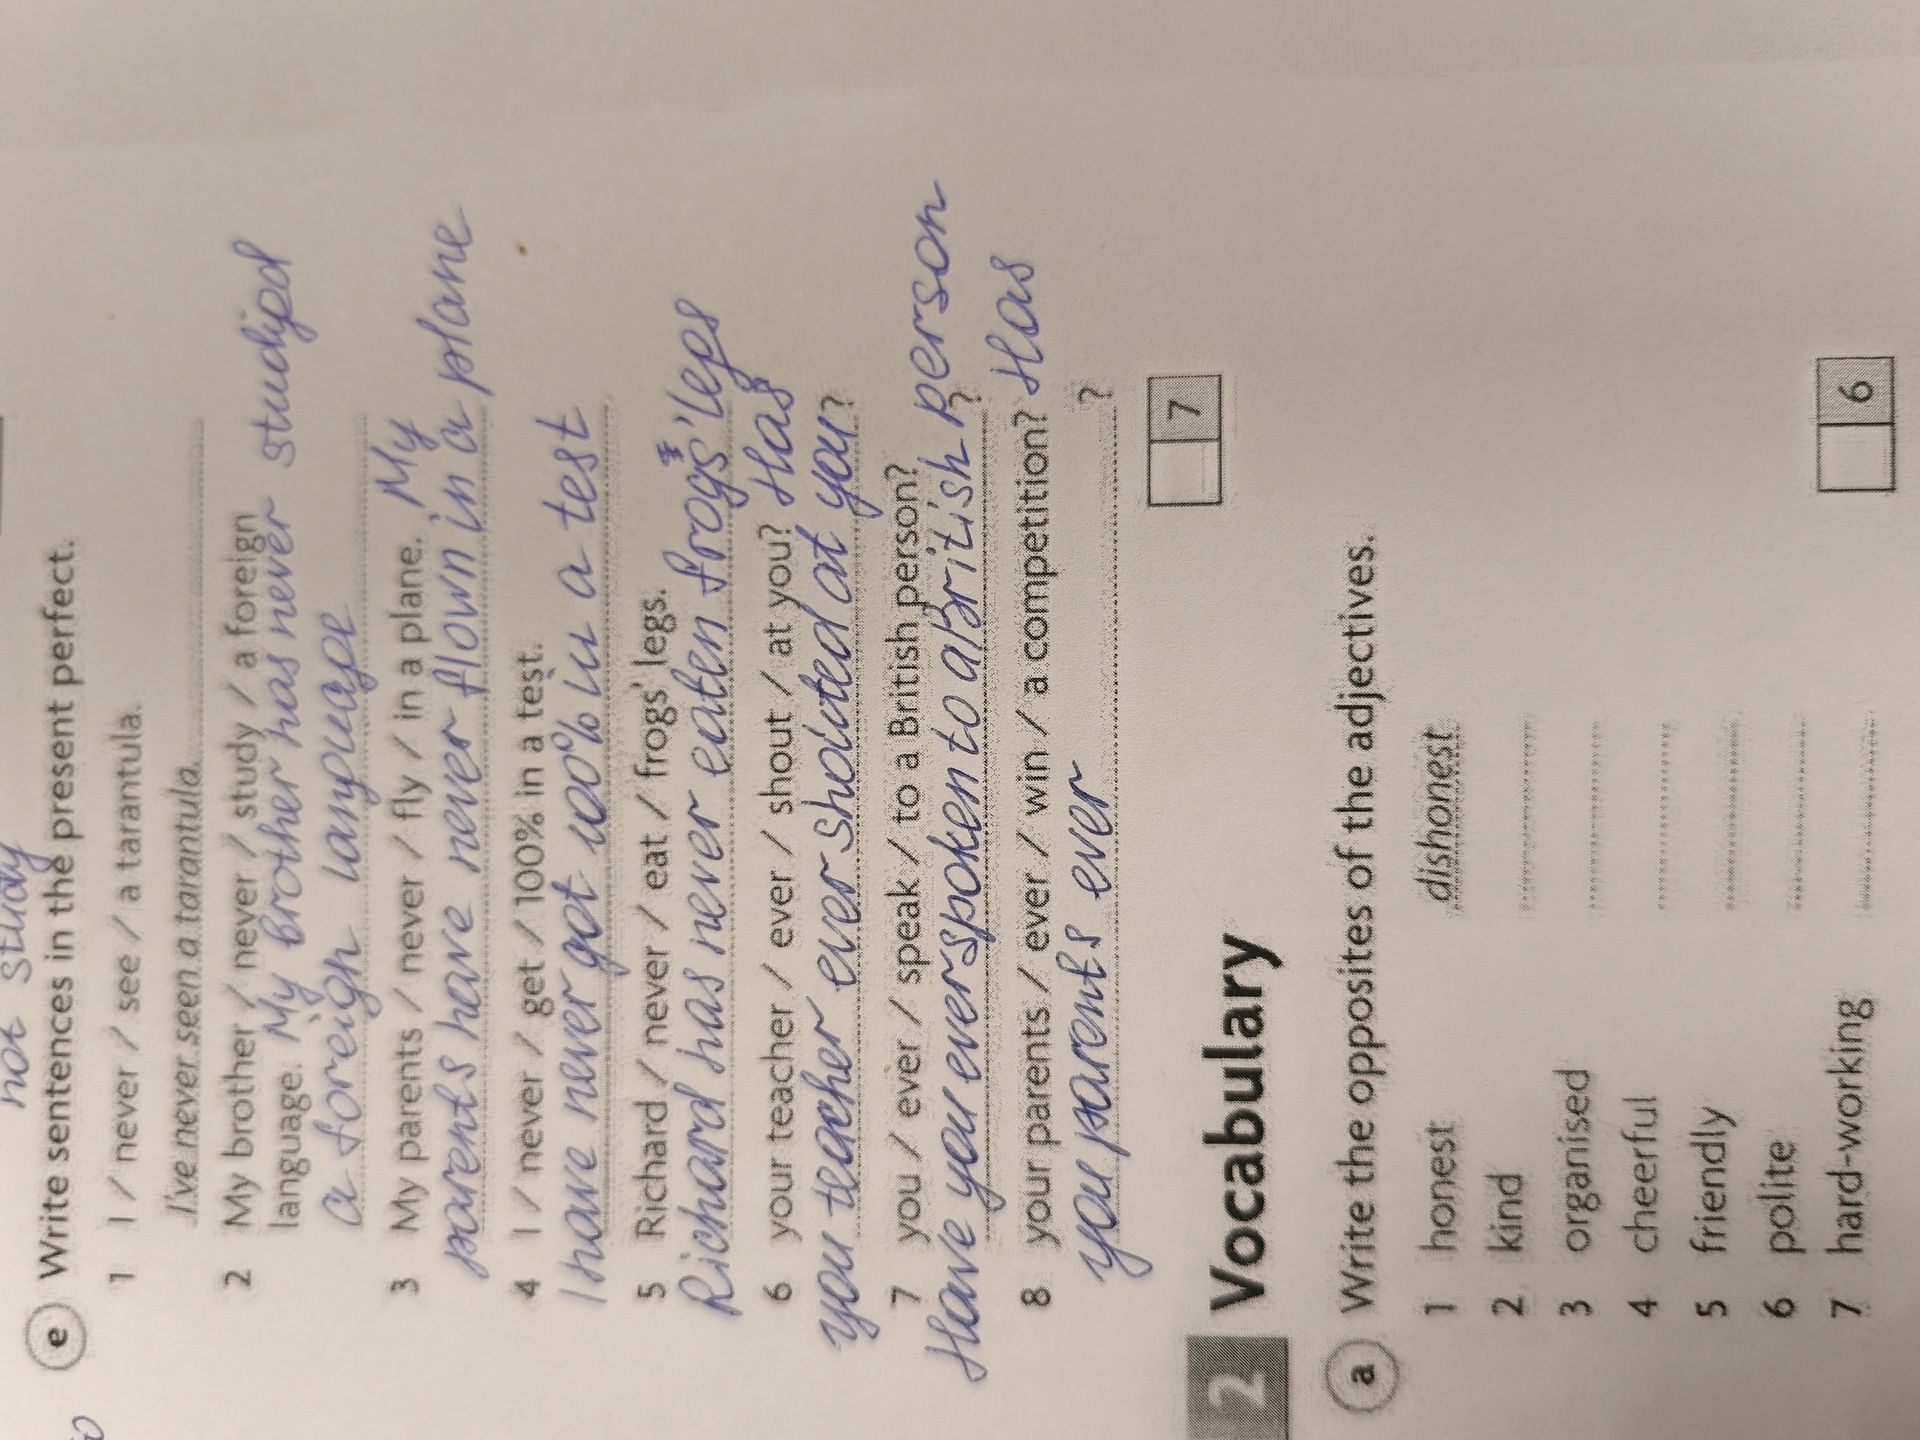 not study
e Write sentences in the present perfect.
1 I / never / see / a tarantula.
I've never seen a tarantula.
2 My brother / never / study / a foreign
language. My brother has never studied
a foreign language
3 My parents / never / fly / in a plane. My
parents have never flown in a plane
4 I / never / get / 100% in a test.
I have never got 100% in a test
5 Richard / never / eat / frogs' legs.
Richard has never eaten frogs' legs
6 your teacher / ever / shout / at you? Has
you teacher ever shouted at you?
7 you / ever / speak / to a British person?
Have you ever spoken to a British person?
8 your parents / ever / win / a competition? Has
you parents ever ?
7
2 Vocabulary
a Write the opposites of the adjectives.
1 honest dishonest
2 kind
3 organised
4 cheerful
5 friendly
6 polite
7 hard-working
6